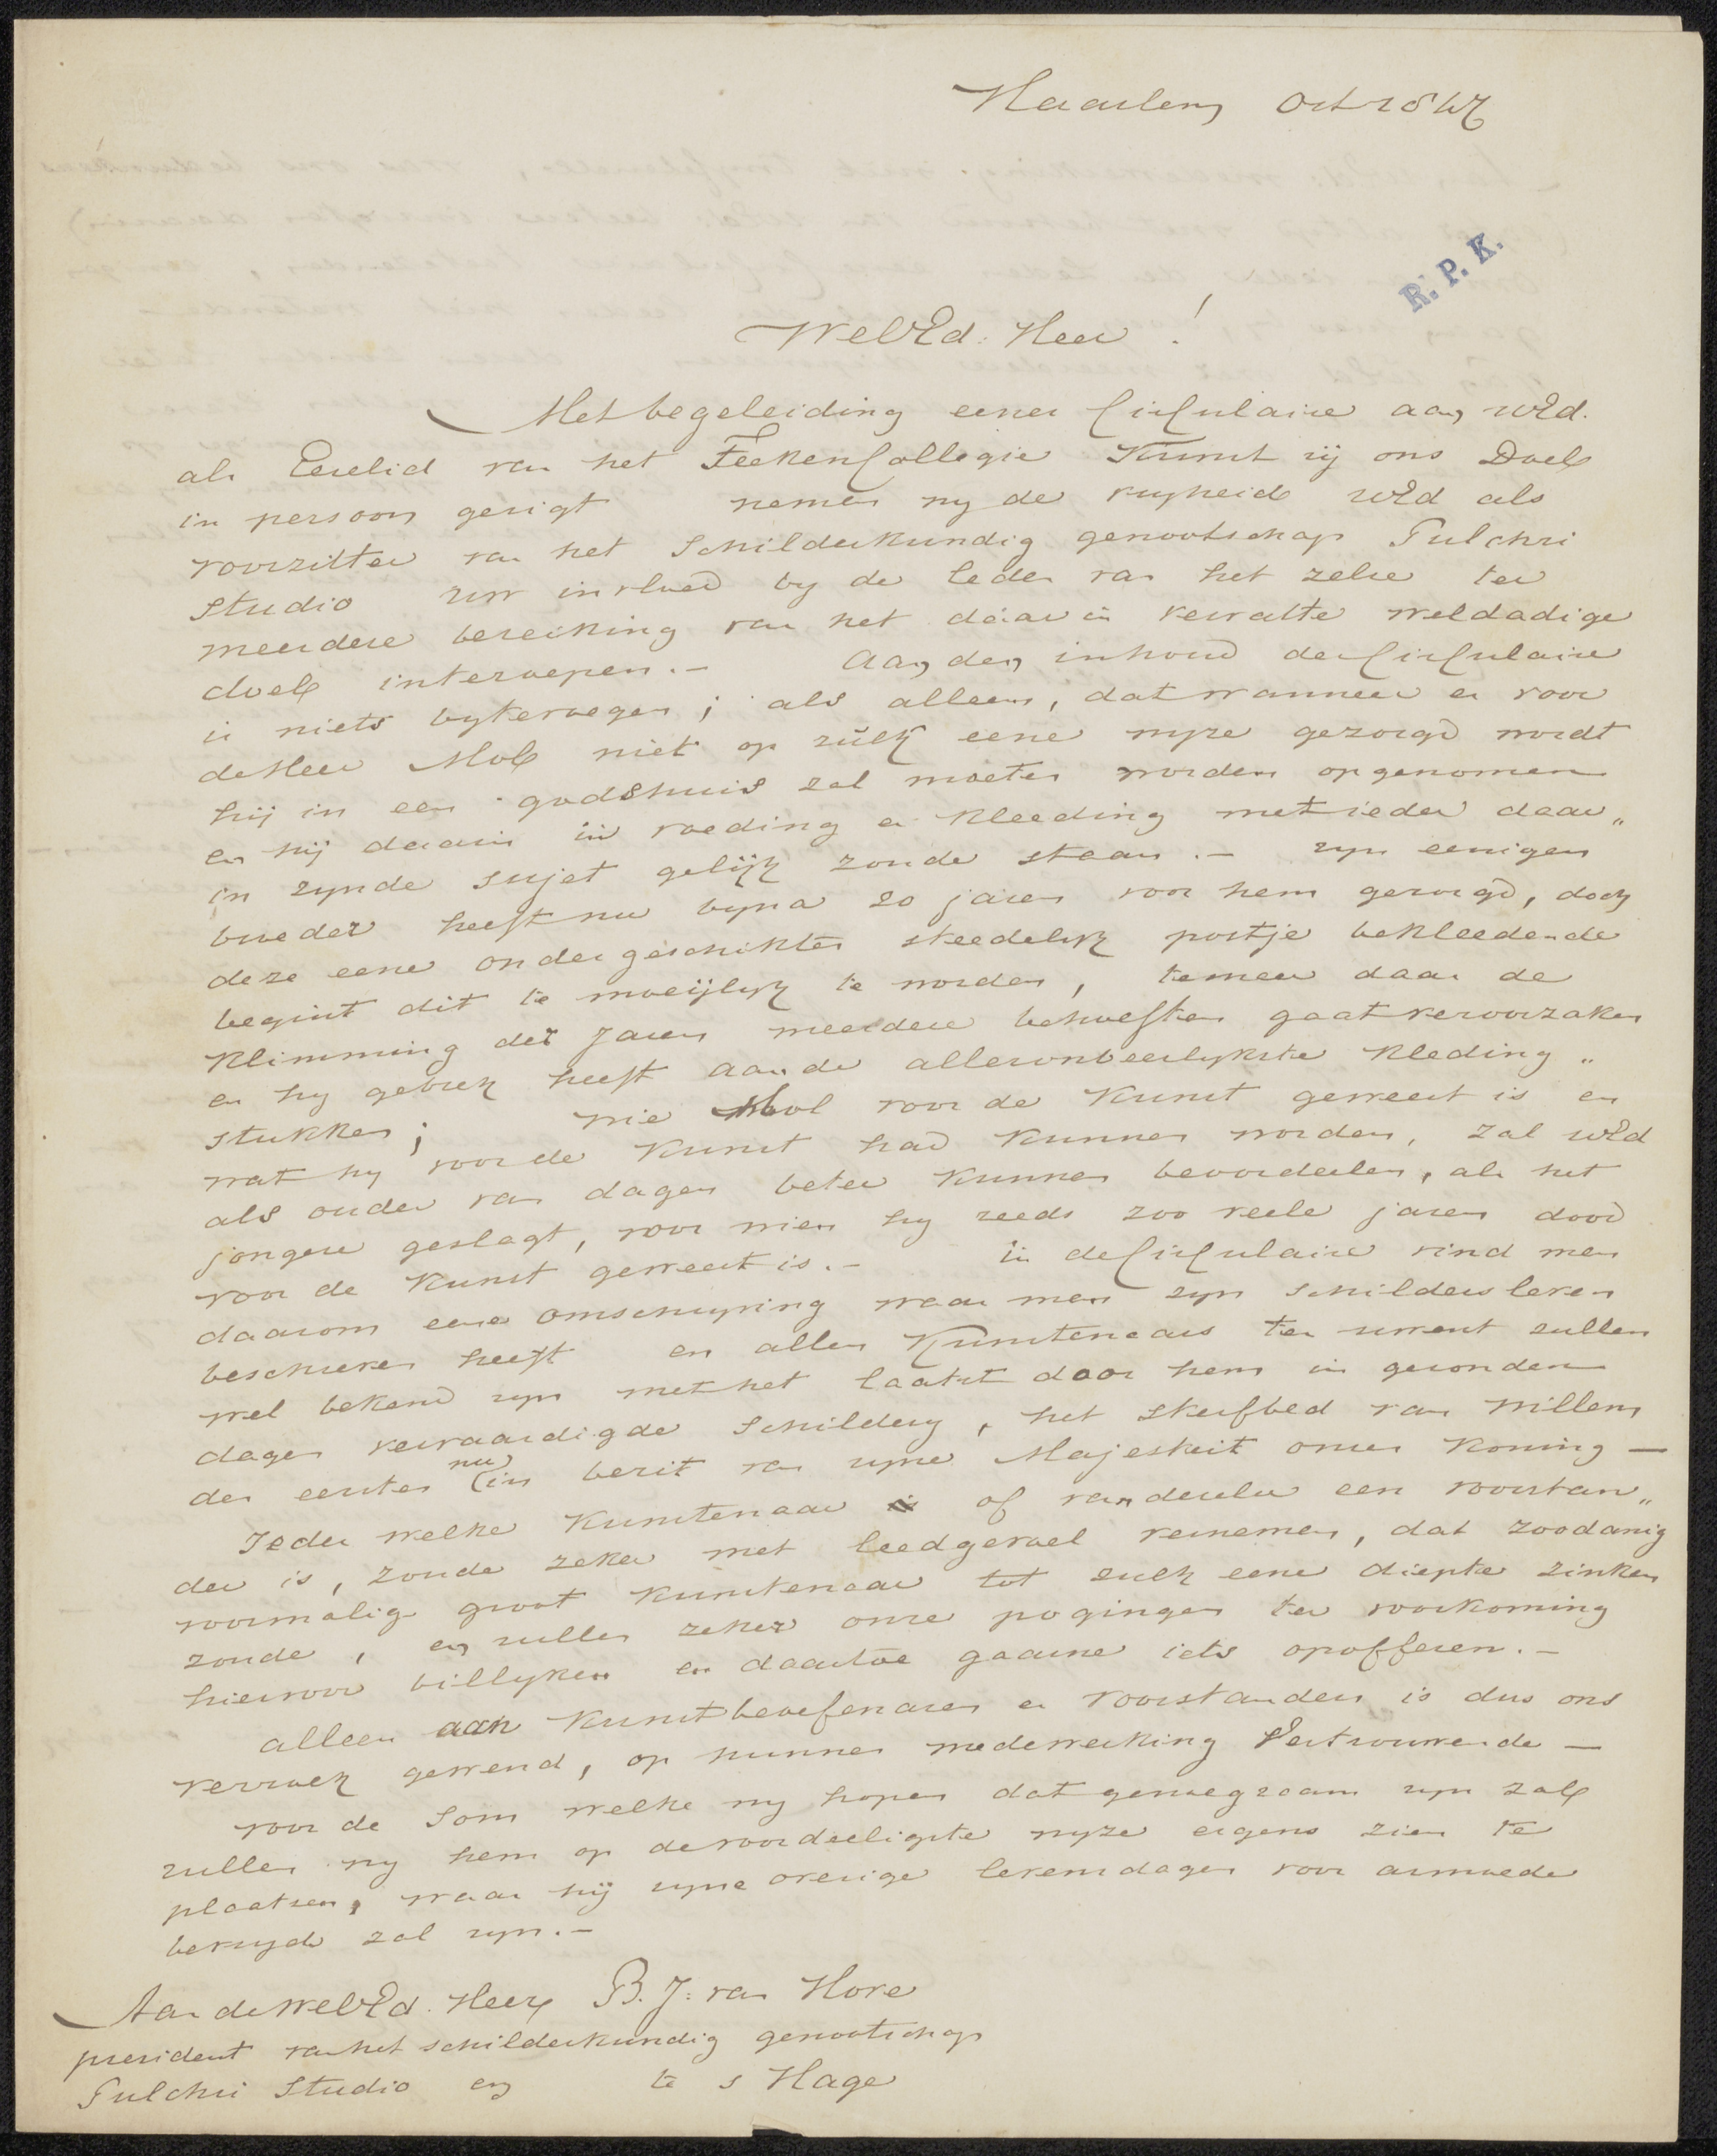 Haarlem Oct 1847
R. P. K.
WelEd: Heer !
Met begeleiding eener Circulaire aan UEd.
als Eerelid van het TeekenCollegie Kunst zij ons Doel
in persoon gerigt nemen wy de vryheid UEd als
voorzitter van het Schilderkundig genootschap Pulchri
Studio uw invloed by de leden van het zelve ter
meerdere bereiking van het daar in vervatte weldadige
doel interoepen. -
Aan den inhoud der Circulaire
is niets bytevoegen; als alleen, dat wanneer er voor
de Heer Mol niet op zulk eene wyze gezorgd wordt
hij in een godshuis zal moeten worden opgenomen
en hij daarin in voeding en kleeding met ieder daar„
in zynde sujet gelijk zoude staan. - zyn eenigen
broeder heeft nu byna 20 jaren voor hem gezorgd, doch
deze eene ondergeschikten steedelyk postje bekleedende
begint dit te moeijlyk te worden, temeer daar de
klimming der Jaren meerdere behoeften gaat veroorzaken
en hy gebrek heeft aan de alleronbeerlykste kleding„
stukken; wie Mol voor de Kunst geweest is en
wat hy voor de Kunst had kunnen worden, zal UEd
als ouder van dagen beter kunnen beoordeelen, als het
jongere geslagt, voor wien hy reeds zoo veele jaren dood
voor de Kunst geweest is. - in de Circulaire vind men
daarom eene omschryving waar men zyn schildersleven
beschreven heeft en allen Kunstenaars ten uwent zullen
wel bekend zyn met het laatst door hem in gezonden
dagen vervaardigde Schildery, het sterfbed van Willem
den eersten nu in bezit van zyne Majesteit onzen Koning —
Ieder welke Kunstenaar is of van dezelve een voorstan„
der is, zoude zeker met leedgevoel vernemen, dat zoodanig
voormalig groot Kunstenaar tot zulk eene diepte zinken
zoude, en zullen zeker onze pogingen ter voorkoming
hiervoor billyken en daartoe gaarne iets opofferen. -
alleen aan Kunstbeoefenaren en Voorstanders is dus ons
verzoek gewend, op hunnen medewerking Vertrouwende —
voor de Som welke wy hopen dat genoegzaam zyn zal
zullen wy hem op de voordeeligste wyze ergens zien te
plaatsen, waar hij zyne overige levensdagen voor armoede
bevryd zal zyn. -
Aan de WelEd. Heer B. J: van Hove
president van het schilderkundig genootschap
Pulchri Studio enz te s Hage